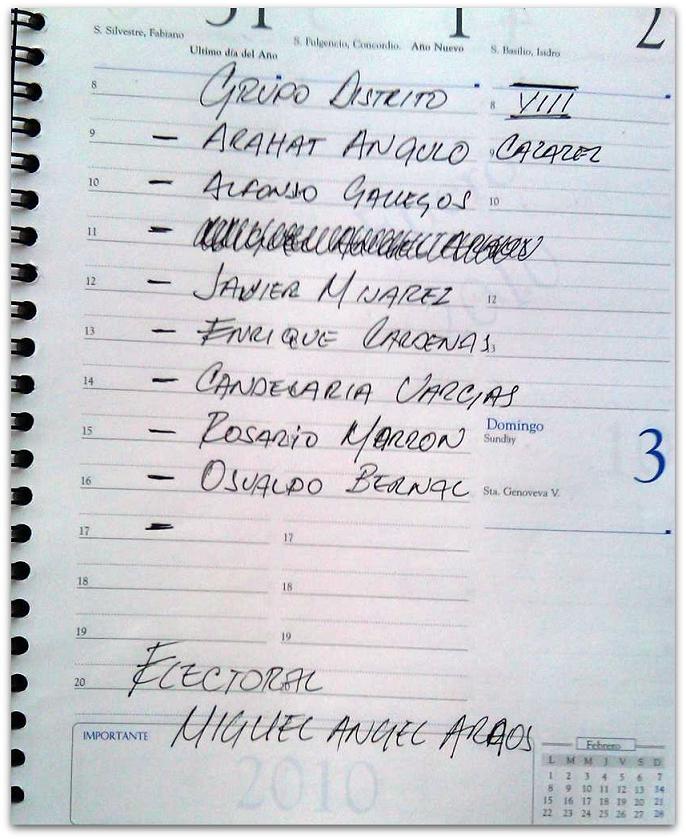 31 1 2
S. Silvestre, Fabiano S. Fulgencio, Concordio. Año Nuevo S. Basilio, Isidro
Ultimo día del Año
8 GRUPO DISTRITO 8 VIII
9 - ARAHAT ANGULO 9 CAZAREZ
10 - ALFONSO GALLEGOS 10
11 -
12 - JAVIER MIJAREZ 12
13 - ENRIQUE CARDENAS 13
14 - CANDELARIA VARGAS
Domingo
Sunday
3
15 - ROSARIO MARRON
16 - OSUALDO BERNAL
Sta. Genoveva V.
17 - 17
18 18
19 19
20 ELECTORAL
IMPORTANTE MIGUEL ANGEL
2010
Febrero
L M M J V S D
1 2 3 4 5 6 7
8 9 10 11 12 13 14
15 16 17 18 19 20 21
22 23 24 25 26 27 28